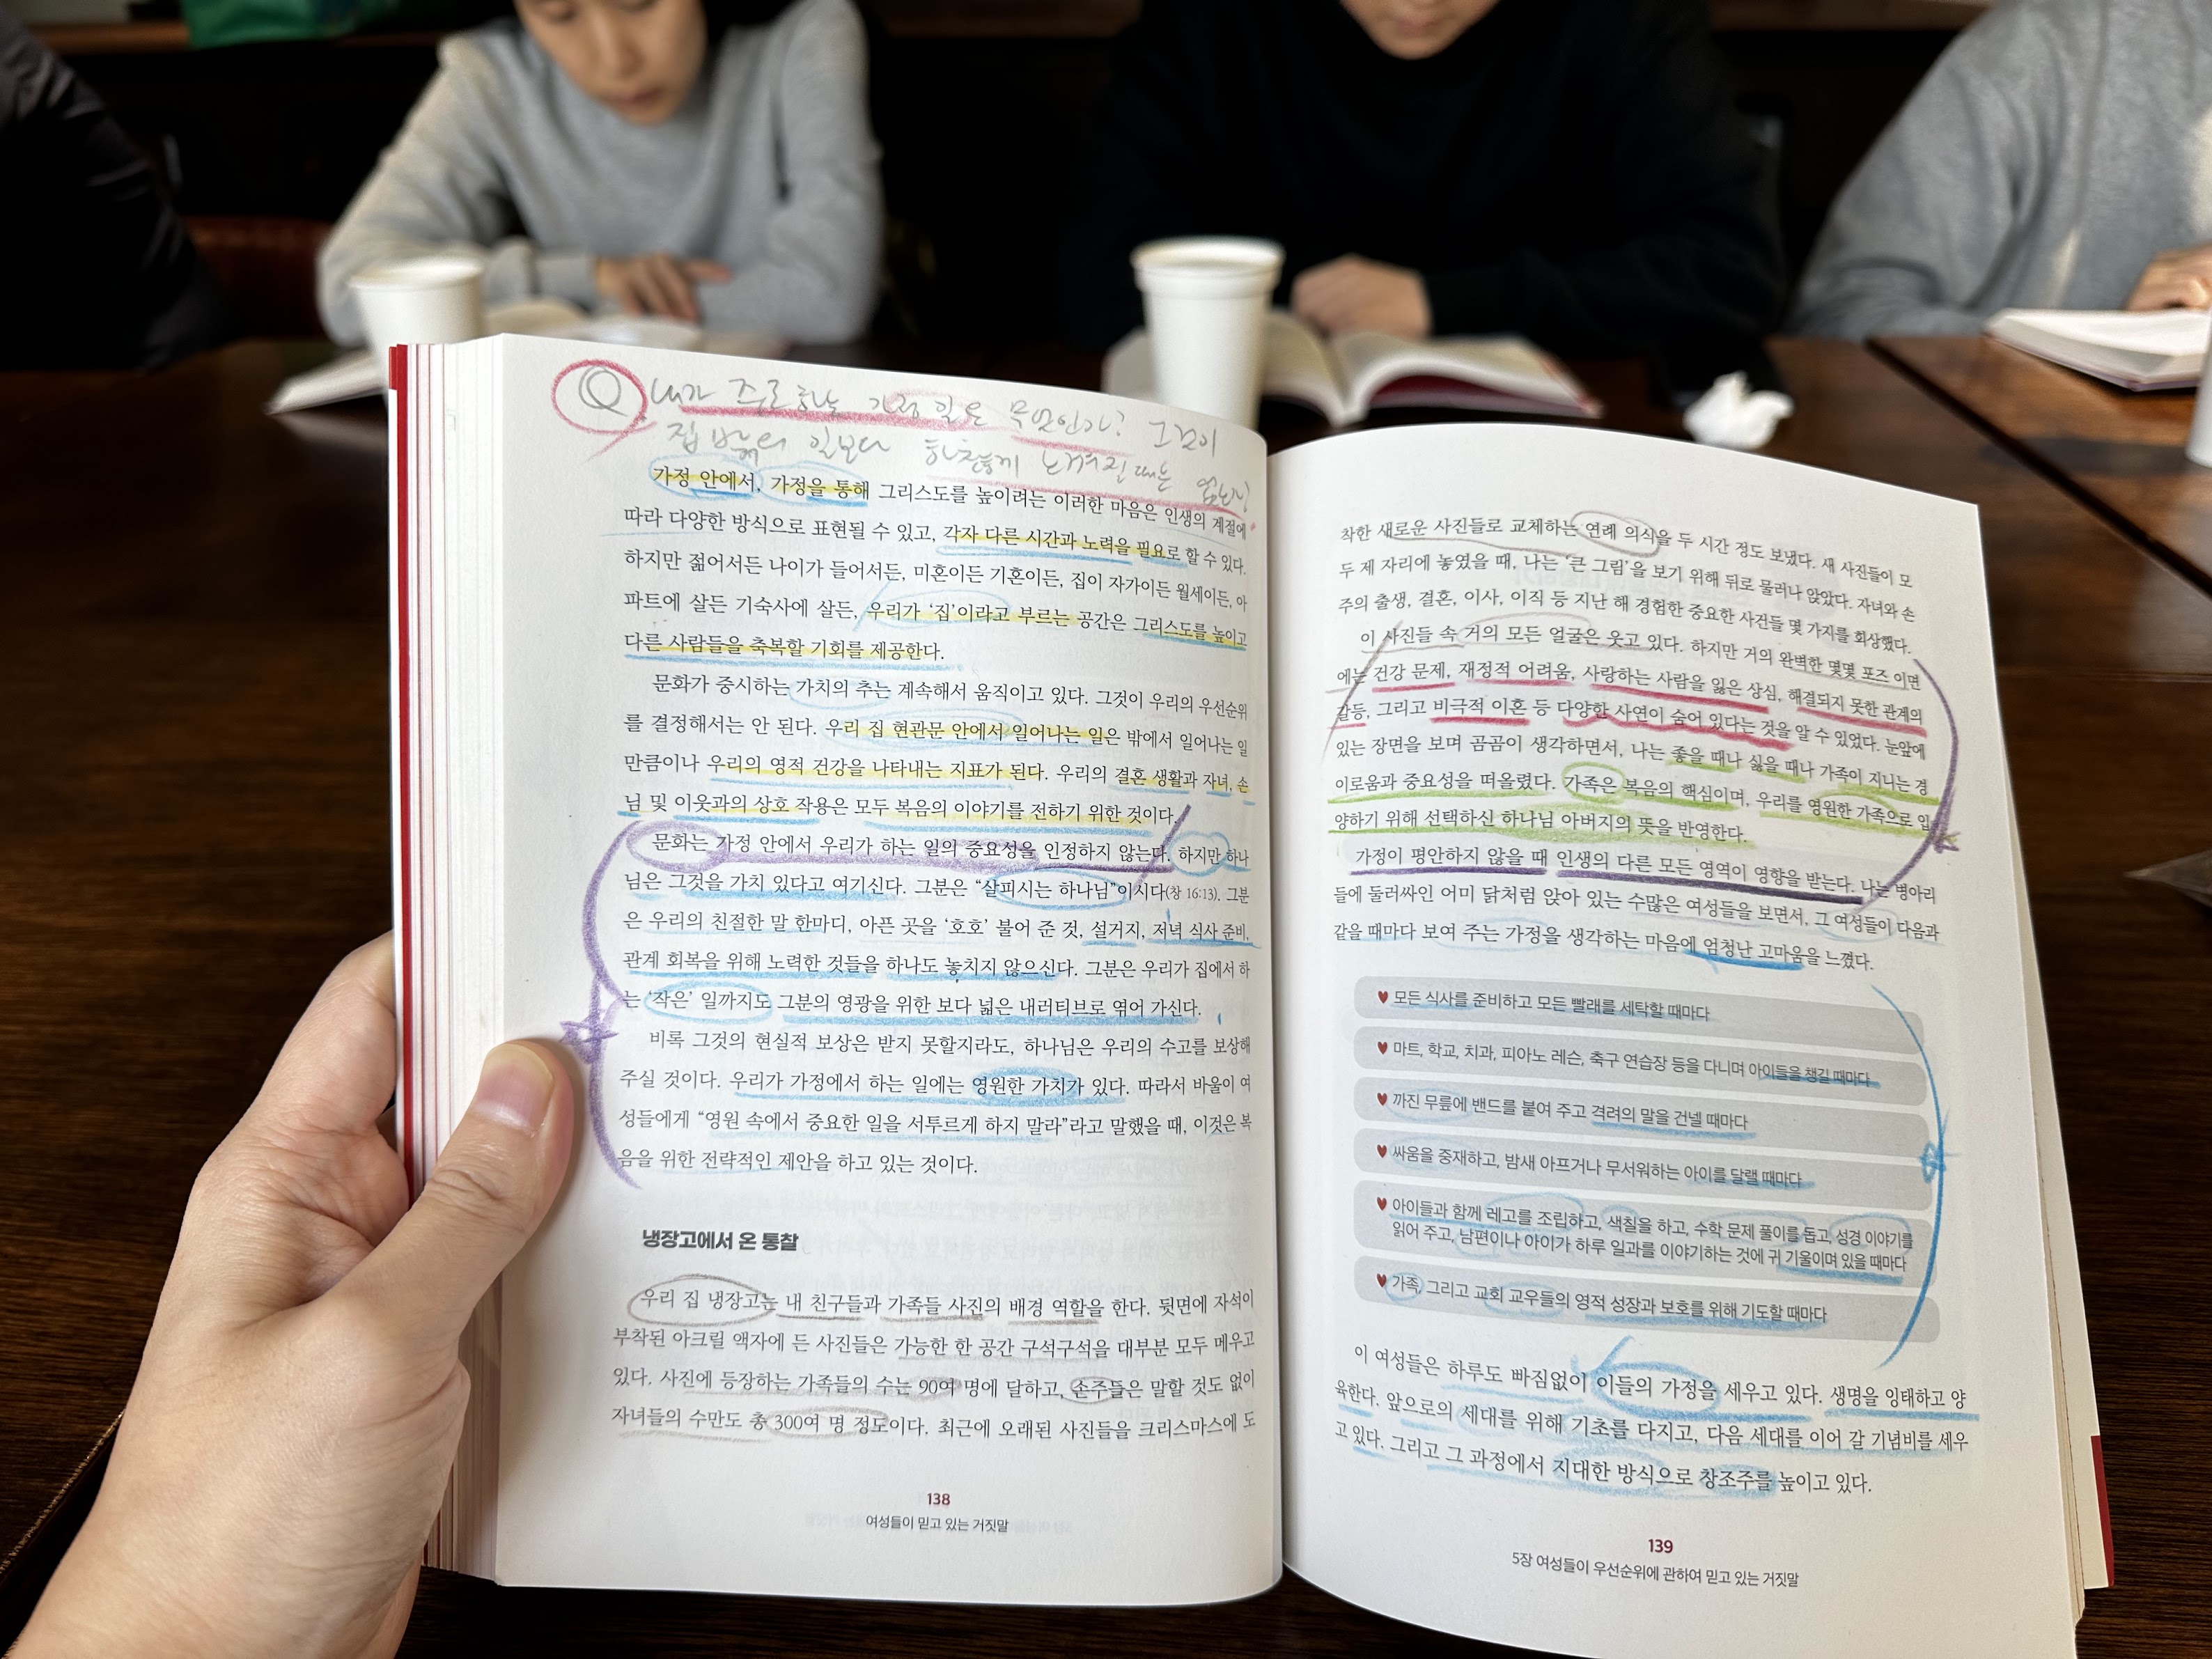 Q 내가 주로 하는 가정 일은 무엇인가? 그것이
집 밖의 일보다 하찮게 느껴질 때는 없는가?
가정 안에서, 가정을 통해 그리스도를 높이려는 이러한 마음은 인생의 계절에
따라 다양한 방식으로 표현될 수 있고, 각자 다른 시간과 노력을 필요로 할 수 있다.
하지만 젊어서든 나이가 들어서든, 미혼이든 기혼이든, 집이 자가이든 월세이든, 아
파트에 살든 기숙사에 살든, 우리가 ‘집’이라고 부르는 공간은 그리스도를 높이고
다른 사람들을 축복할 기회를 제공한다.
문화가 중시하는 가치의 추는 계속해서 움직이고 있다. 그것이 우리의 우선순위
를 결정해서는 안 된다. 우리 집 현관문 안에서 일어나는 일은 밖에서 일어나는 일
만큼이나 우리의 영적 건강을 나타내는 지표가 된다. 우리의 결혼 생활과 자녀, 손
님 및 이웃과의 상호 작용은 모두 복음의 이야기를 전하기 위한 것이다.
문화는 가정 안에서 우리가 하는 일의 중요성을 인정하지 않는다. 하지만 하나
님은 그것을 가치 있다고 여기신다. 그분은 “살피시는 하나님”이시다(창 16:13). 그분
은 우리의 친절한 말 한마디, 아픈 곳을 ‘호호’ 불어 준 것, 설거지, 저녁 식사 준비,
관계 회복을 위해 노력한 것들을 하나도 놓치지 않으신다. 그분은 우리가 집에서 하
는 ‘작은’ 일까지도 그분의 영광을 위한 보다 넓은 내러티브로 엮어 가신다.
비록 그것의 현실적 보상은 받지 못할지라도, 하나님은 우리의 수고를 보상해
주실 것이다. 우리가 가정에서 하는 일에는 영원한 가치가 있다. 따라서 바울이 여
성들에게 “영원 속에서 중요한 일을 서투르게 하지 말라”라고 말했을 때, 이것은 복
음을 위한 전략적인 제안을 하고 있는 것이다.
냉장고에서 온 통찰
우리 집 냉장고는 내 친구들과 가족들 사진의 배경 역할을 한다. 뒷면에 자석이
부착된 아크릴 액자에 든 사진들은 가능한 한 공간 구석구석을 대부분 모두 메우고
있다. 사진에 등장하는 가족들의 수는 90여 명에 달하고, 손주들은 말할 것도 없이
자녀들의 수만도 총 300여 명 정도이다. 최근에 오래된 사진들을 크리스마스에 도
138
여성들이 믿고 있는 거짓말
착한 새로운 사진들로 교체하는 연례 의식을 두 시간 정도 보냈다. 새 사진들이 모
두 제 자리에 놓였을 때, 나는 ‘큰 그림’을 보기 위해 뒤로 물러나 앉았다. 자녀와 손
주의 출생, 결혼, 이사, 이직 등 지난 해 경험한 중요한 사건들 몇 가지를 회상했다.
이 사진들 속 거의 모든 얼굴은 웃고 있다. 하지만 거의 완벽한 몇몇 포즈 이면
에는 건강 문제, 재정적 어려움, 사랑하는 사람을 잃은 상심, 해결되지 못한 관계의
갈등, 그리고 비극적 이혼 등 다양한 사연이 숨어 있다는 것을 알 수 있었다. 눈앞에
있는 장면을 보며 곰곰이 생각하면서, 나는 좋을 때나 싫을 때나 가족이 지니는 경
이로움과 중요성을 떠올렸다. 가족은 복음의 핵심이며, 우리를 영원한 가족으로 입
양하기 위해 선택하신 하나님 아버지의 뜻을 반영한다.
가정이 평안하지 않을 때 인생의 다른 모든 영역이 영향을 받는다. 나는 병아리
들에 둘러싸인 어미 닭처럼 앉아 있는 수많은 여성들을 보면서, 그 여성들이 다음과
같을 때마다 보여 주는 가정을 생각하는 마음에 엄청난 고마움을 느꼈다.
♥ 모든 식사를 준비하고 모든 빨래를 세탁할 때마다
♥ 마트, 학교, 치과, 피아노 레슨, 축구 연습장 등을 다니며 아이들을 챙길 때마다
♥ 까진 무릎에 밴드를 붙여 주고 격려의 말을 건넬 때마다
♥ 싸움을 중재하고, 밤새 아프거나 무서워하는 아이를 달랠 때마다
♥ 아이들과 함께 레고를 조립하고, 색칠을 하고, 수학 문제 풀이를 돕고, 성경 이야기를
읽어 주고, 남편이나 아이가 하루 일과를 이야기하는 것에 귀 기울이며 있을 때마다
♥ 가족, 그리고 교회 교우들의 영적 성장과 보호를 위해 기도할 때마다
이 여성들은 하루도 빠짐없이 이들의 가정을 세우고 있다. 생명을 잉태하고 양
육한다. 앞으로의 세대를 위해 기초를 다지고, 다음 세대를 이어 갈 기념비를 세우
고 있다. 그리고 그 과정에서 지대한 방식으로 창조주를 높이고 있다.
139
5장 여성들이 우선순위에 관하여 믿고 있는 거짓말